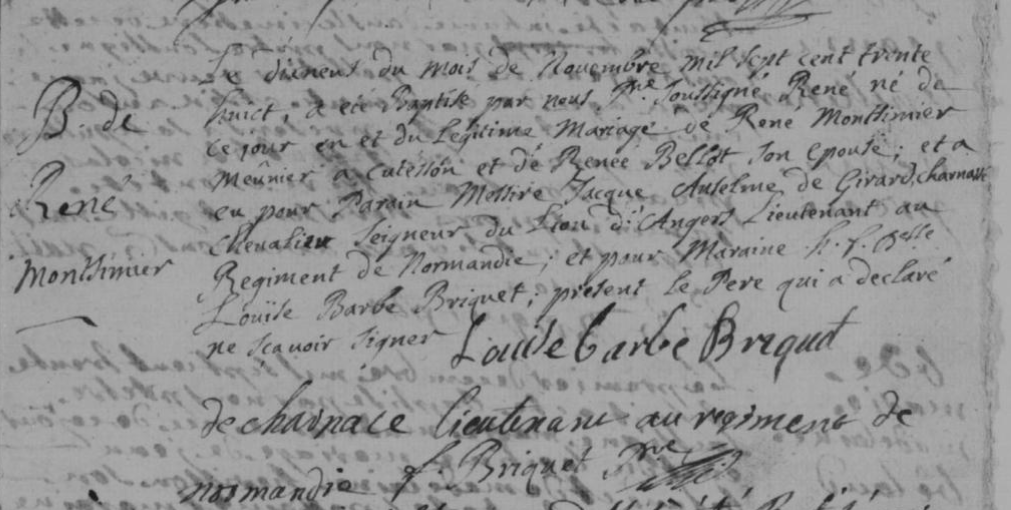 B de
René
Montsimier
Le dixneuf du mois de Novembre mil sept cent trente
huict, a été Baptisé par nous Pre. soussigné René né de
ce jour en et du legitime Mariage de René Montsimier
Meûnier a et de Renée Bellot son epouse; et a
eu pour Parain Messire Jacque Anselme de Girard, charnassé
chevalier Seigneur du Lion d'Angers Lieutenant au
Regiment de Normandie; et pour Maraine h. f. Delle
Loüise Barbe Briquet; present le Pere qui a declaré
ne scavoir signer Louise barbe Briqut
de charnace lieutenant au regiment de
normandie f. Briquet Pre